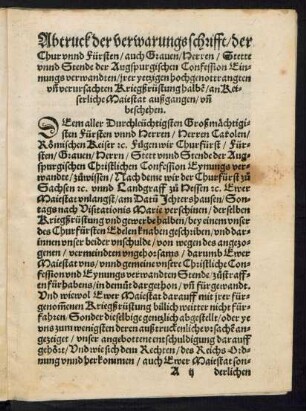 Abtruck der verwarungs schrifft/ der
Chur vnnd Fürsten/ auch Grauen/ Herren/ Stette
vnnd Stende der Augspurgischen Confession Ein-
nungs verwandten/ jrer yetzigen hochgenottrangten
vñ verursachten Kriegßrüstung halbẽ/ an Kei-
serliche Maiestat außgangen/ vñ
beschehen.
DEem aller Durchleüchtigsten Großmächtigi-
sten Fürsten vnnd Herren/ Herren Carolen/
Römischen Keiser ⁊c. Fügen wir Churfürst/ Für-
sten/ Grauen/ Herrn/ Stett vnnd Stende der Aug-
spurgischen Christlichen Confession Eynungs ver-
wandte/ zůwissen/ Nach deme wir der Churfürst zů
Sachsen ⁊c. vnnd Landgraff zů Hessen ⁊c. Ewer
Maiestat vnlangst/ am Datũ Ichtershausen/ Son-
tags nach Visitationis Marie verschinen/ derselben
Kriegßrüstung vnd gewerbe halben/ bey einem vnser
des Churfürsten Edelen knaben geschriben/ vnd dar-
innen vnser beider vnschulde/ von wegen des angezo-
genen/ vermeindten vngehorsams/ darumb Ewer
Maiestat vns/ vnnd gemeine vnsere Christliche Con-
fession vnd Eynungs verwandten Stende zůstraff-
en fürhabens/ in demůt dargethon/ vñ fürgewandt.
Vnd wiewol Ewer Maiestat darauff mit jrer für-
genom̃enen Kriegßrüstung billich weitter nicht für-
faren/ Sonder dieselbige gentzlich abgestellt/ oder ye
vns zum wenigsten deren außtruckenliche vrsachẽ an-
gezeiget/ vnser angebottene entschuldigung darauff
gehört/ Vnd wie sich dem Rechten/ des Reichs Ord-
nung vnnd herkommen/ auch Ewer Maiestat son-
A ij derlichen